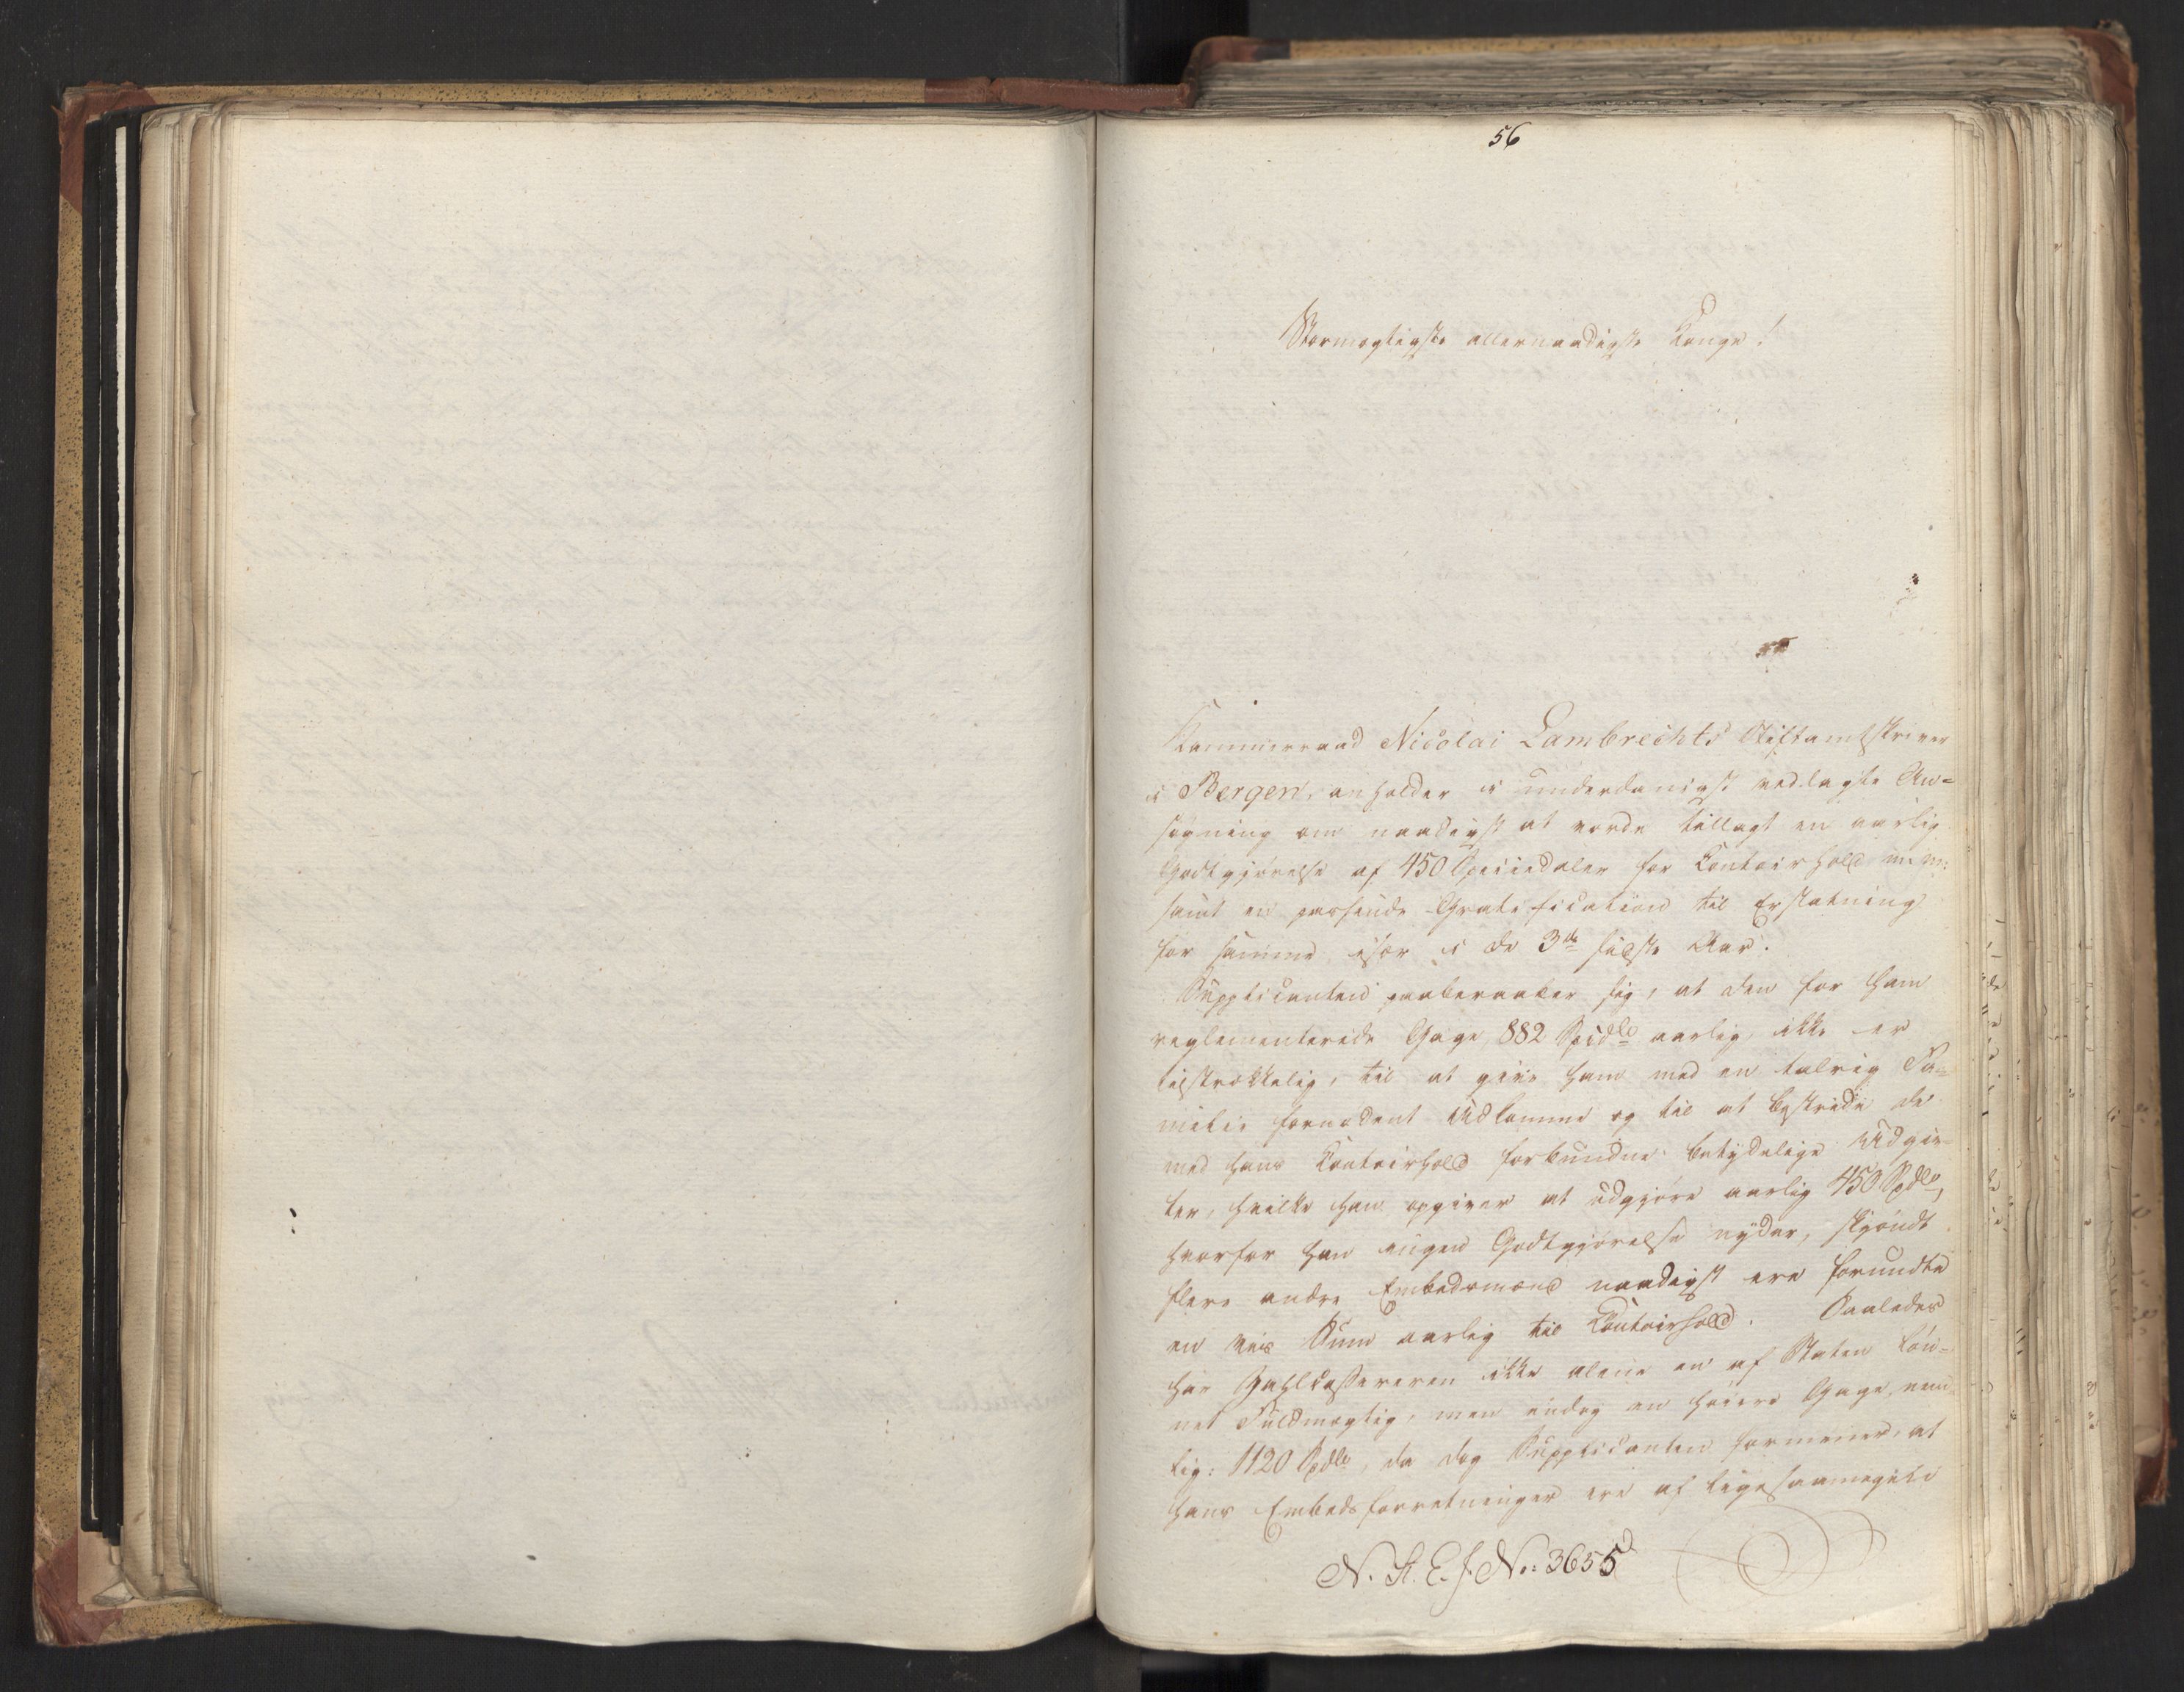 56
Stormægtigste allernaadigste Konge!
Kammerraad Nicolai Lambrechts Stiftamtskriver
i Bergen, anholder i underdanigst vedlagte An=
søgning om naadigst at vorde tillagt en aarlig
Godtgjørelse af 450 Speciedaler for Contoirhold m: m:
samt en passende Gratification til Erstatning
for samme især i de 3de sidste Aar.
Supplicanten paaberaaber sig, at den for ham
reglementerede Gage 882 Spcdlr aarlig ikke er
tilstrækkelig, til at give ham med en talrig Fa=
milie fornødent Udkomme og til at bestride de
med hans Contoirhold forbundne betydelige Udgiv=
ter, hvilke han opgiver at udgjøre aarlig 450 Spdlr,
hvorfor han ingen Godtgjørelse nyder, skjøndt
flere andre Embedsmænd naadigst ere forundte
en vis Sum aarlig til Contoirhold. Saaledes
har Zahlcassereren ikke alene en af Staten løn=
net Fuldmægtig, men endog en høiere Gage, nem
lig: 1120 Spdlr, da dog Supplicanten formener, at
hans Embedsforretninger ere af ligesaamegen
N. St. E. J. No: 3655